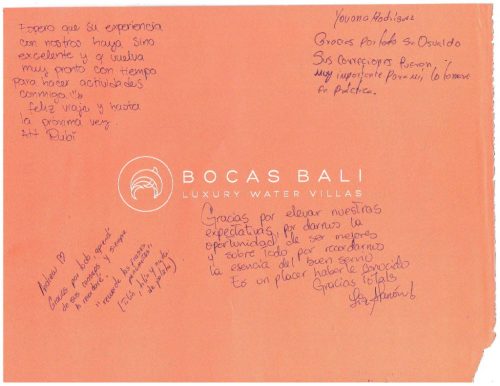 Espero que su experiencia
con nostros haya sino
excelente y q vuelva
muy pronto con tiempo
para hacer actividades
conmigo!!!
feliz viaje y hasta
la proxima vez.
Att Rubí
Yovana Rodriguez
Gracias por todo Sr Osvaldo
Sus correcciones fueron
muy importante para mi, lo tomare
en práctica.
BOCAS BALI
LUXURY WATER VILLAS
Gracias por elevar nuestras
expectativas, por darnos la
oportunidad de ser mejores
y sobre todo por recordarnos
la esencia del buen servir
Es un placer haberle conocido
Gracias totals
Andrea
Gracias por todo aprendí
de sus consejos y siempre
"recuerde las frases